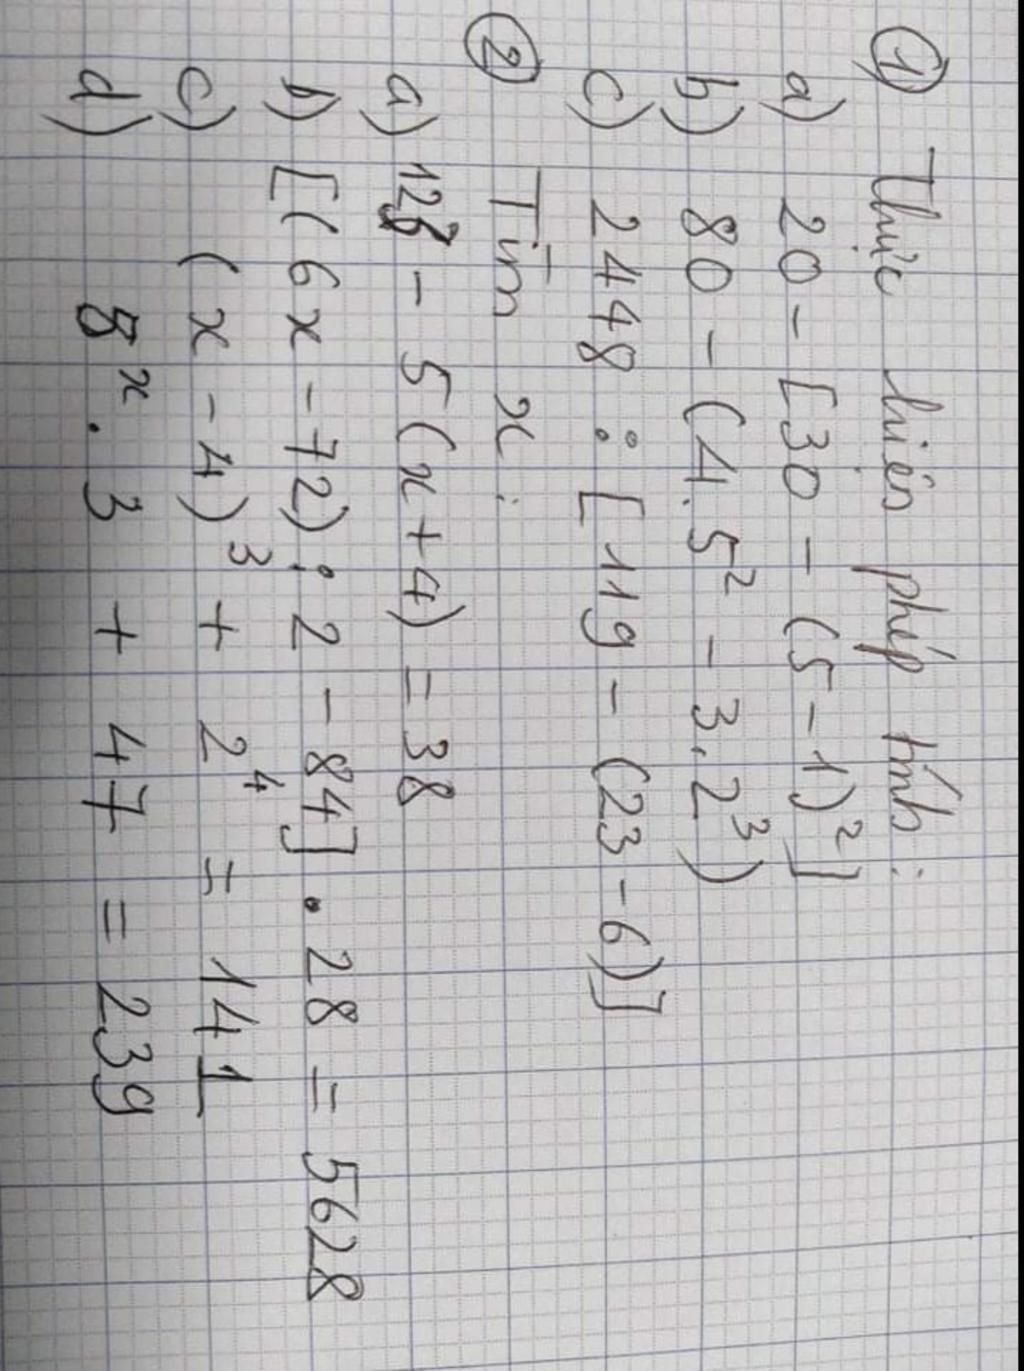 ① Thực hiện phép tính:
a) 20 - [30 - (5 - 1)²]
b) 80 - (4.5² - 3.2³)
c) 2448 : [119 - (23 - 6)]
② Tìm x:
a) 128 - 5(x + 4) = 38
b) [(6x - 72) : 2 - 84] . 28 = 5628
c) (x - 4)³ + 2⁴ = 141
d) 8ˣ . 3 + 47 = 239